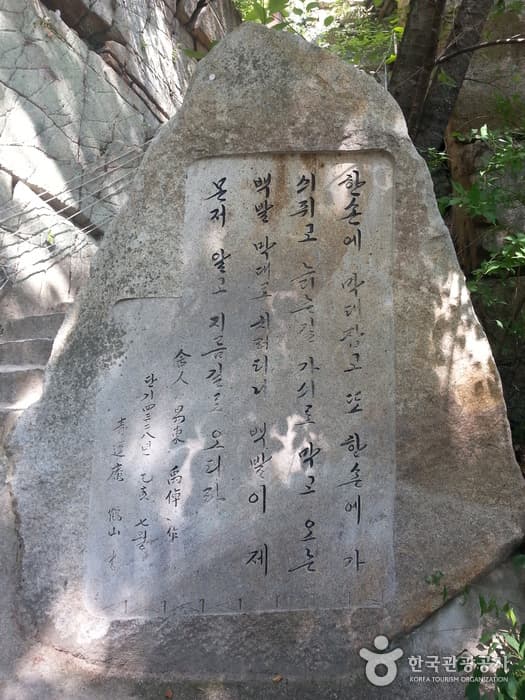 한손에 막대잡고 또 한손에 가
쇠쥐고 늙는길 가쇠로 막고 오는
백발 막대로 치려터니 백발이 제
몬저 알고 지름길로 오더라
舍人 易東 禹倬 作
단기四三二八년 乙亥 七월
鶴山 書
한국관광공사
KOREA TOURISM ORGANIZATION